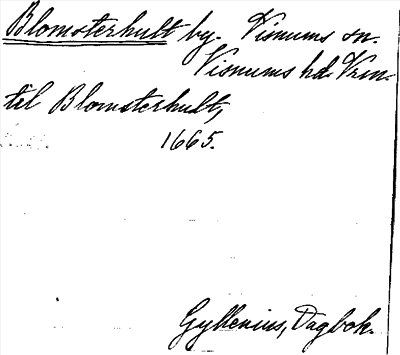 Blomsterhult by. Visnums sn.
Visnums hd. Vrm.
til Blomsterhult,
1665.
Gyllenius, Dagbok.